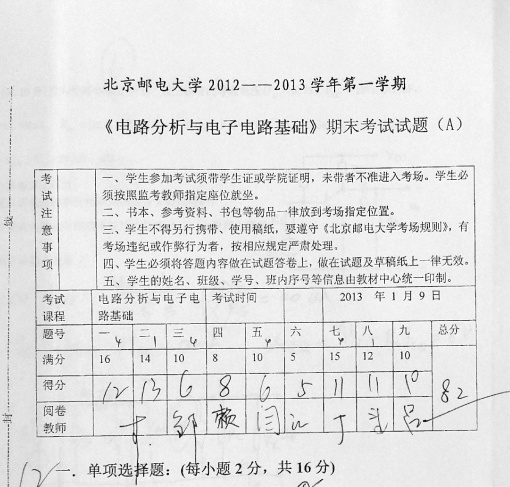 北京邮电大学2012——2013学年第一学期
《电路分析与电子电路基础》期末考试试题（A）
考试注意事项
一、学生参加考试须带学生证或学院证明，未带者不准进入考场。学生必
须按照监考教师指定座位就坐。
二、书本、参考资料、书包等物品一律放到考场指定位置。
三、学生不得另行携带、使用稿纸，要遵守《北京邮电大学考场规则》，有
考场违纪或作弊行为者，按相应规定严肃处理。
四、学生必须将答题内容做在试题答卷上，做在试题及草稿纸上一律无效。
五、学生的姓名、班级、学号、班内序号等信息由教材中心统一印制。
考试课程 电路分析与电子电路基础 考试时间 2013 年 1 月 9 日
题号 一 二 三 四 五 六 七 八 九 总分
4 1 4 4 4 1
满分 16 14 10 8 10 5 15 12 10
得分 12 13 6 8 6 5 11 11 10 82
阅卷教师
12
一．单项选择题：(每小题 2 分，共 16 分)